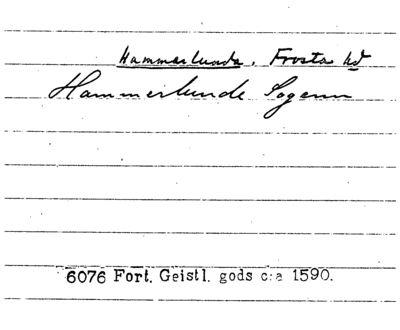 Hammarlunda. Frosta hd
Hammerlunde Sogenn
6076 Fort. Geistl. gods c:a 1590.